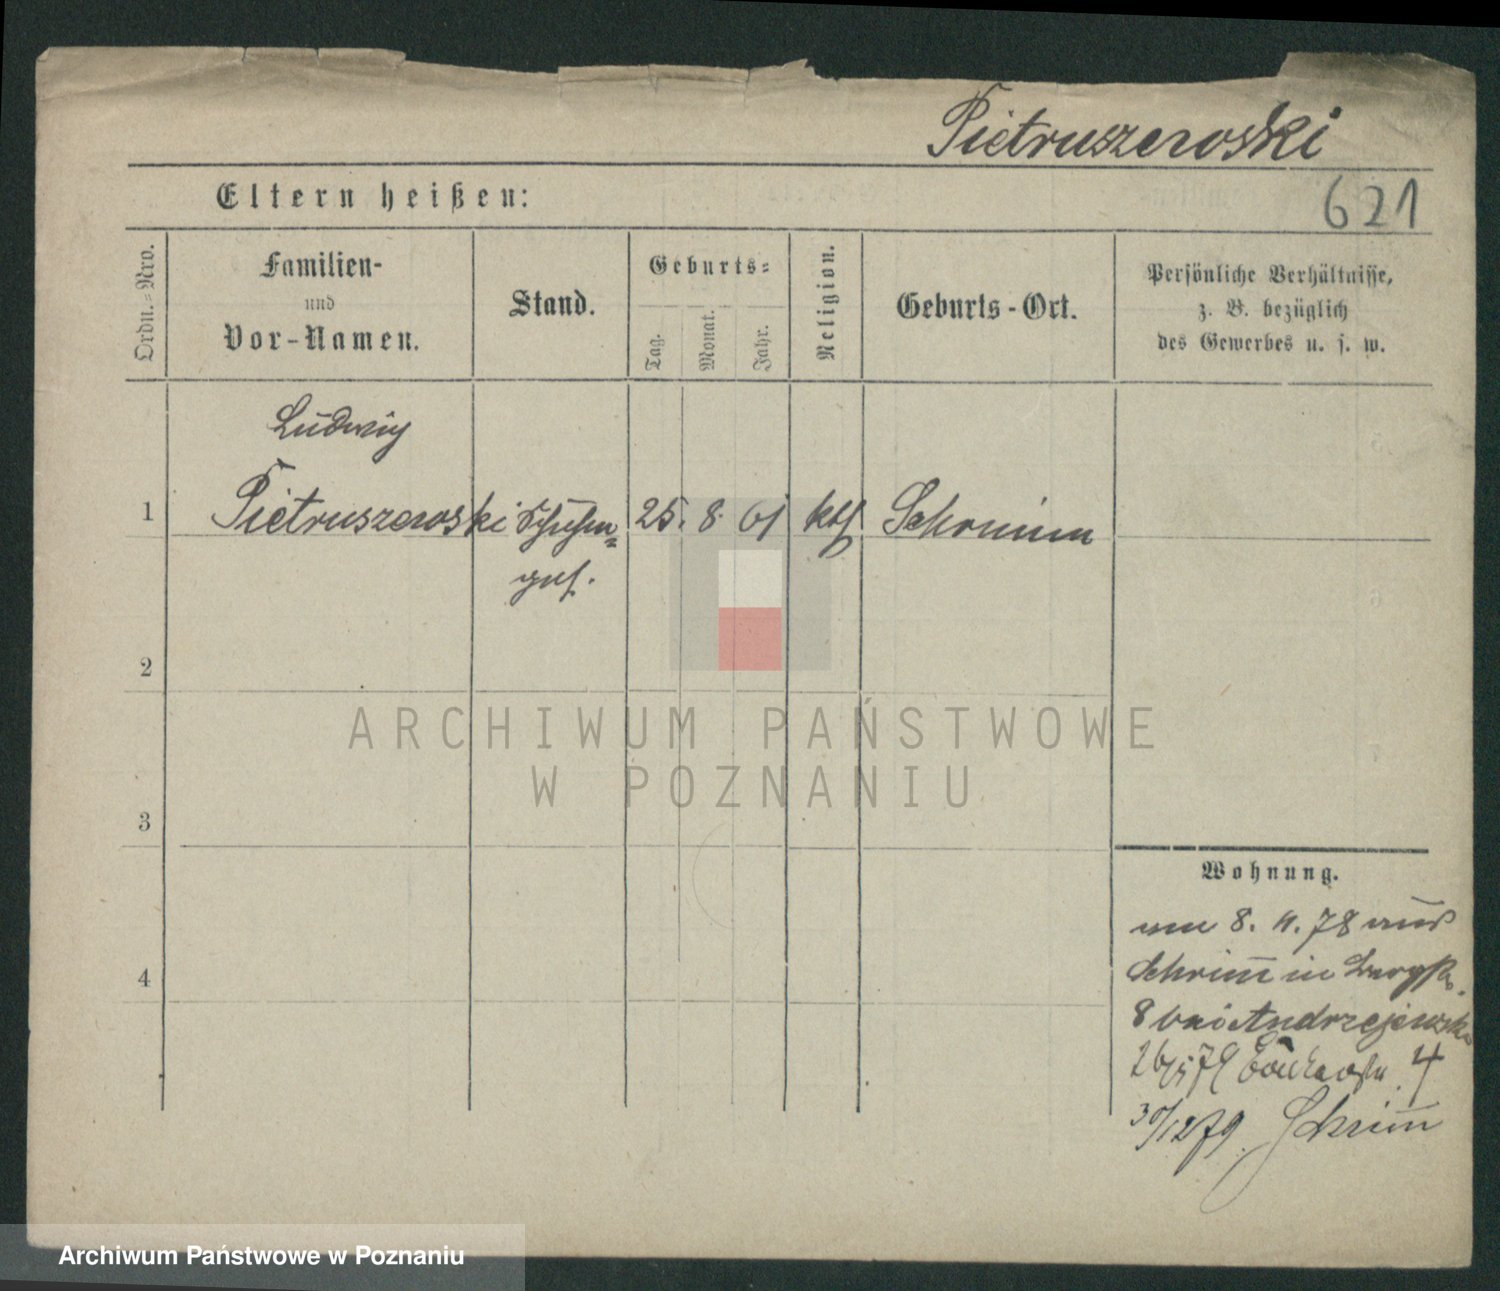 Pietruszewski
621
Eltern heißen:
Ordn.-Nro.
Familien-
und
Vor-Namen.
Stand.
Geburts-
Tag.
Monat.
Jahr.
Religion.
Geburts-Ort.
Persönliche Verhältnisse,
z. B. bezüglich
des Gewerbes u. s. w.
Ludwig
1 Pietruszewski 25. 8. 61 kth Schrimm
2
3
4
ARCHIWUM PAŃSTWOWE
W POZNANIU
Wohnung.
8. 4. 78 aus
Schrim̅ in
8 bei Andrzejewski
79 4
30/12 79. Schrim̅
Archiwum Państwowe w Poznaniu